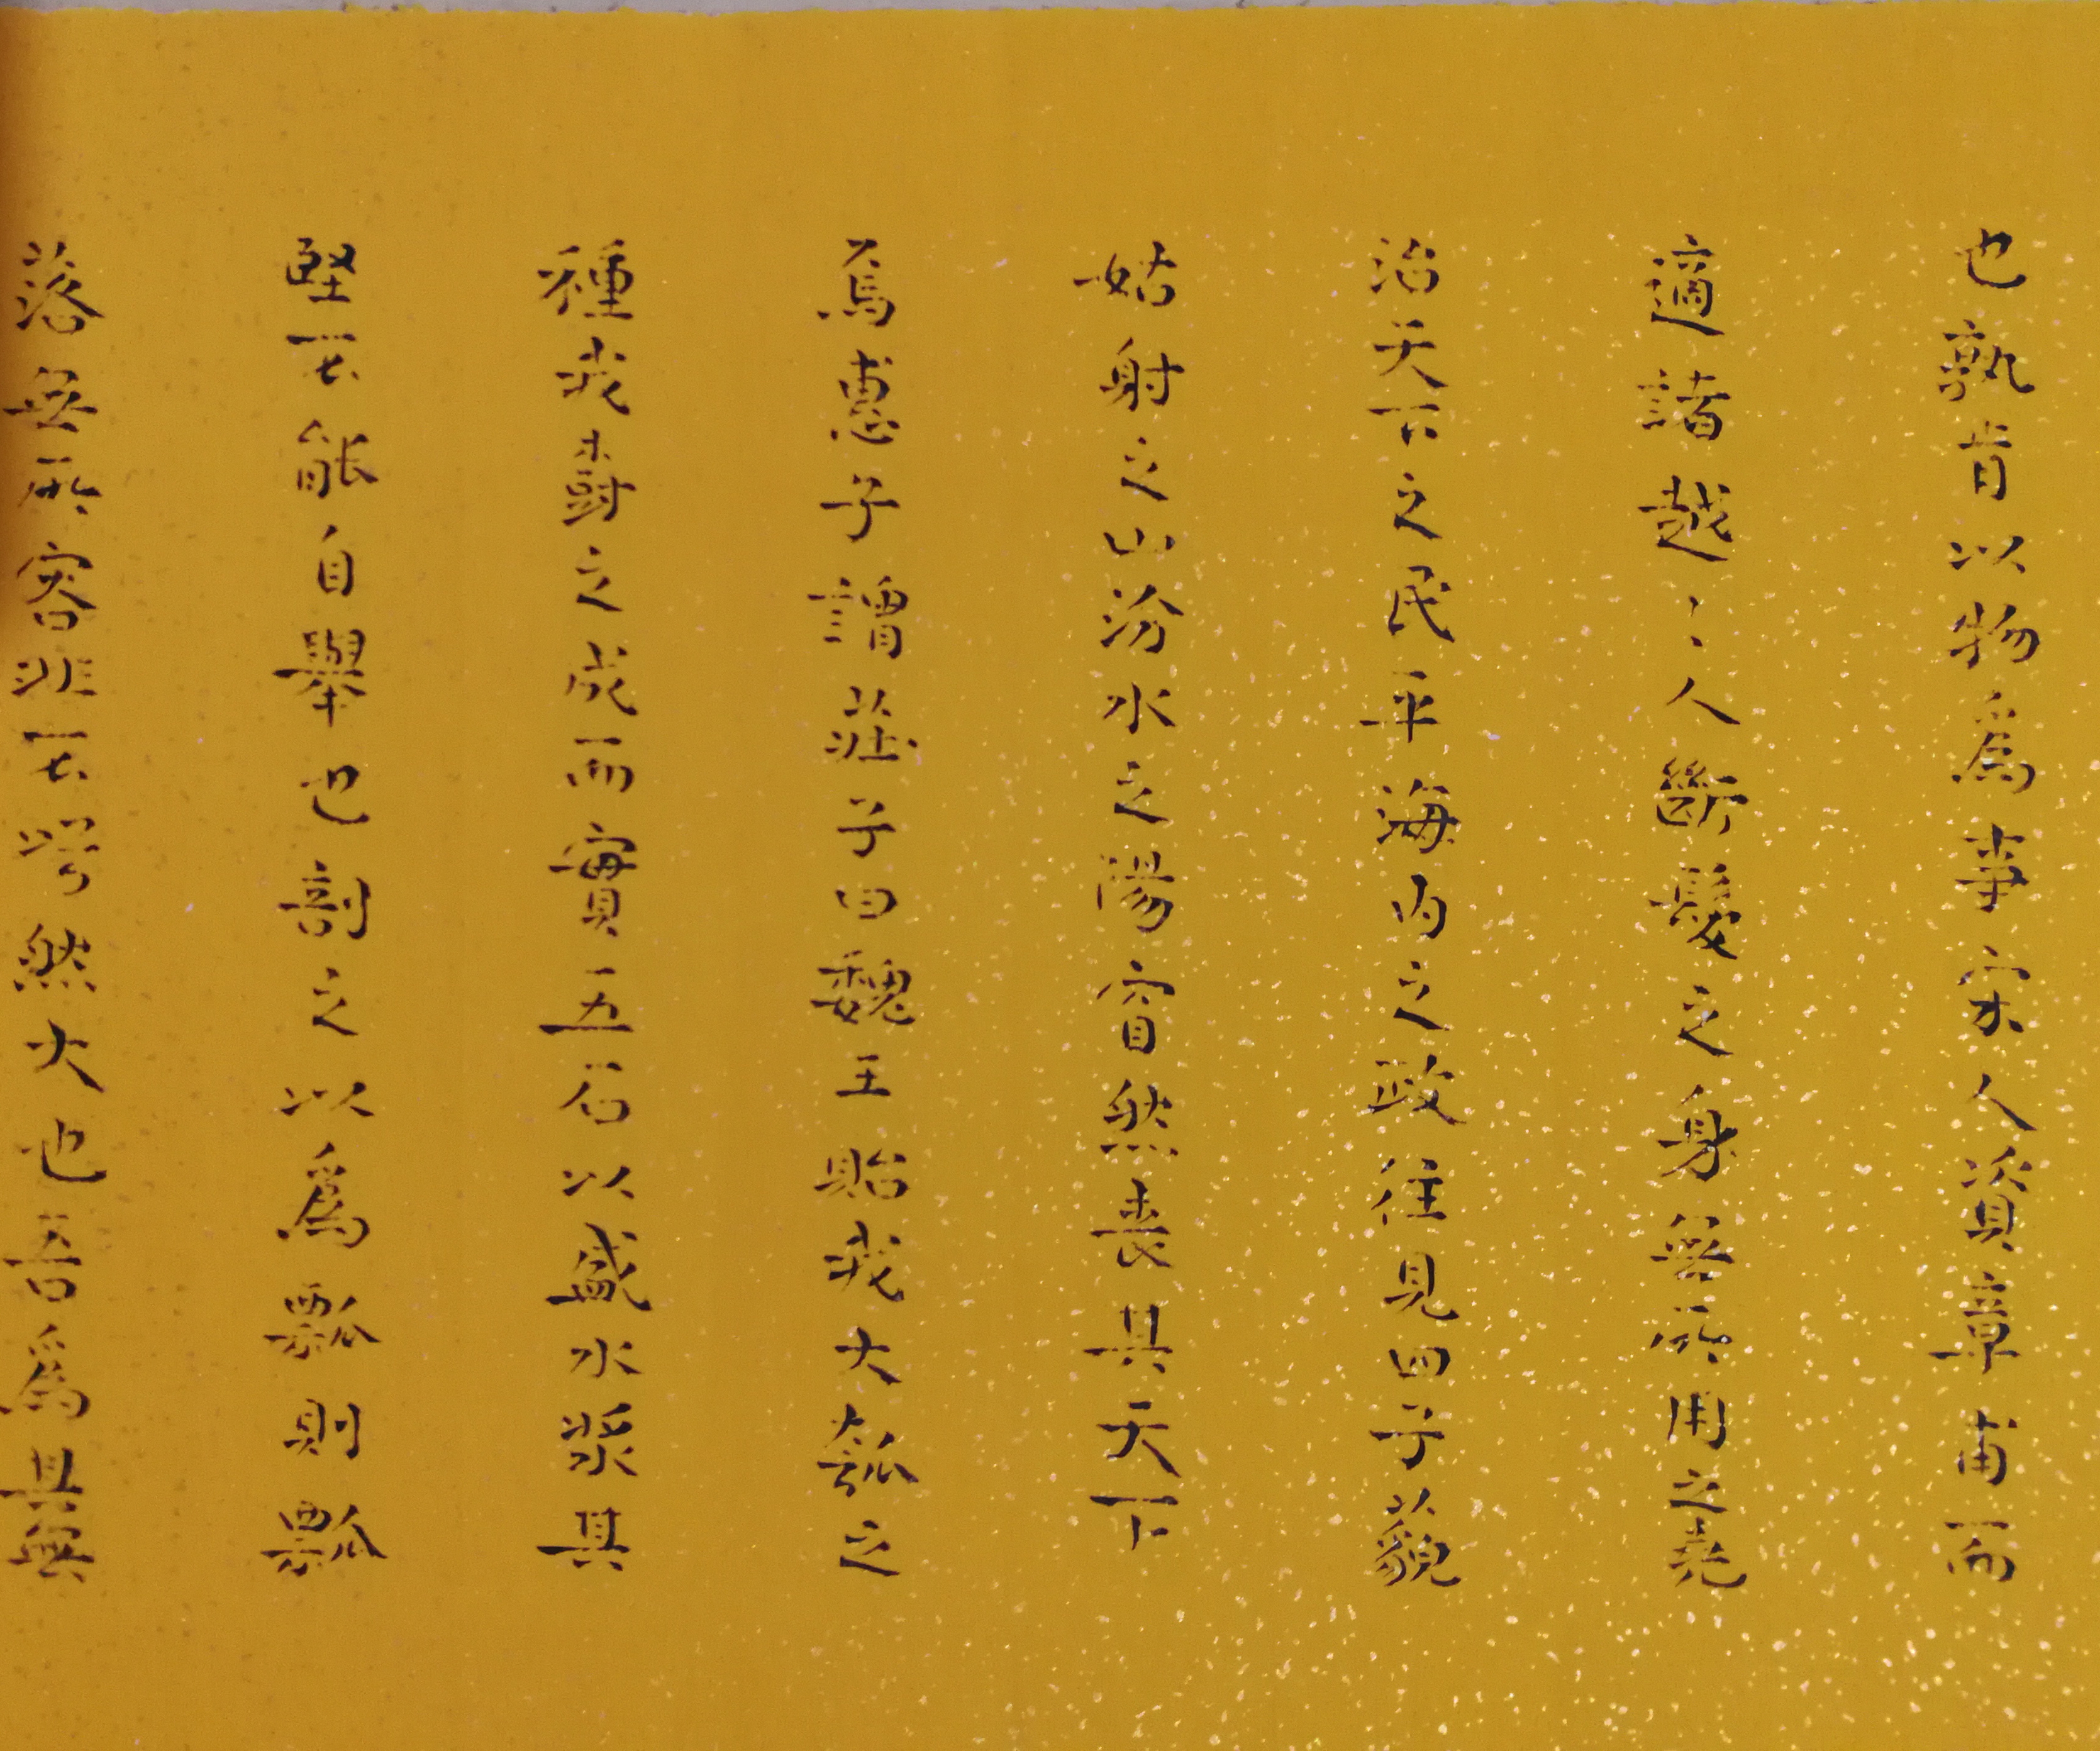 也孰肯以物爲事宋人資章甫而
適諸越〻人斷髮之身無所用之堯
治天下之民平海內之政往見四子藐
姑射之山汾水之陽窅然喪其天下
焉惠子謂莊子曰魏王貽我大瓠之
種我樹之成而實五石以盛水漿其
堅不能自舉也剖之以爲瓢則瓢
落無所容非不呺然大也吾爲其無